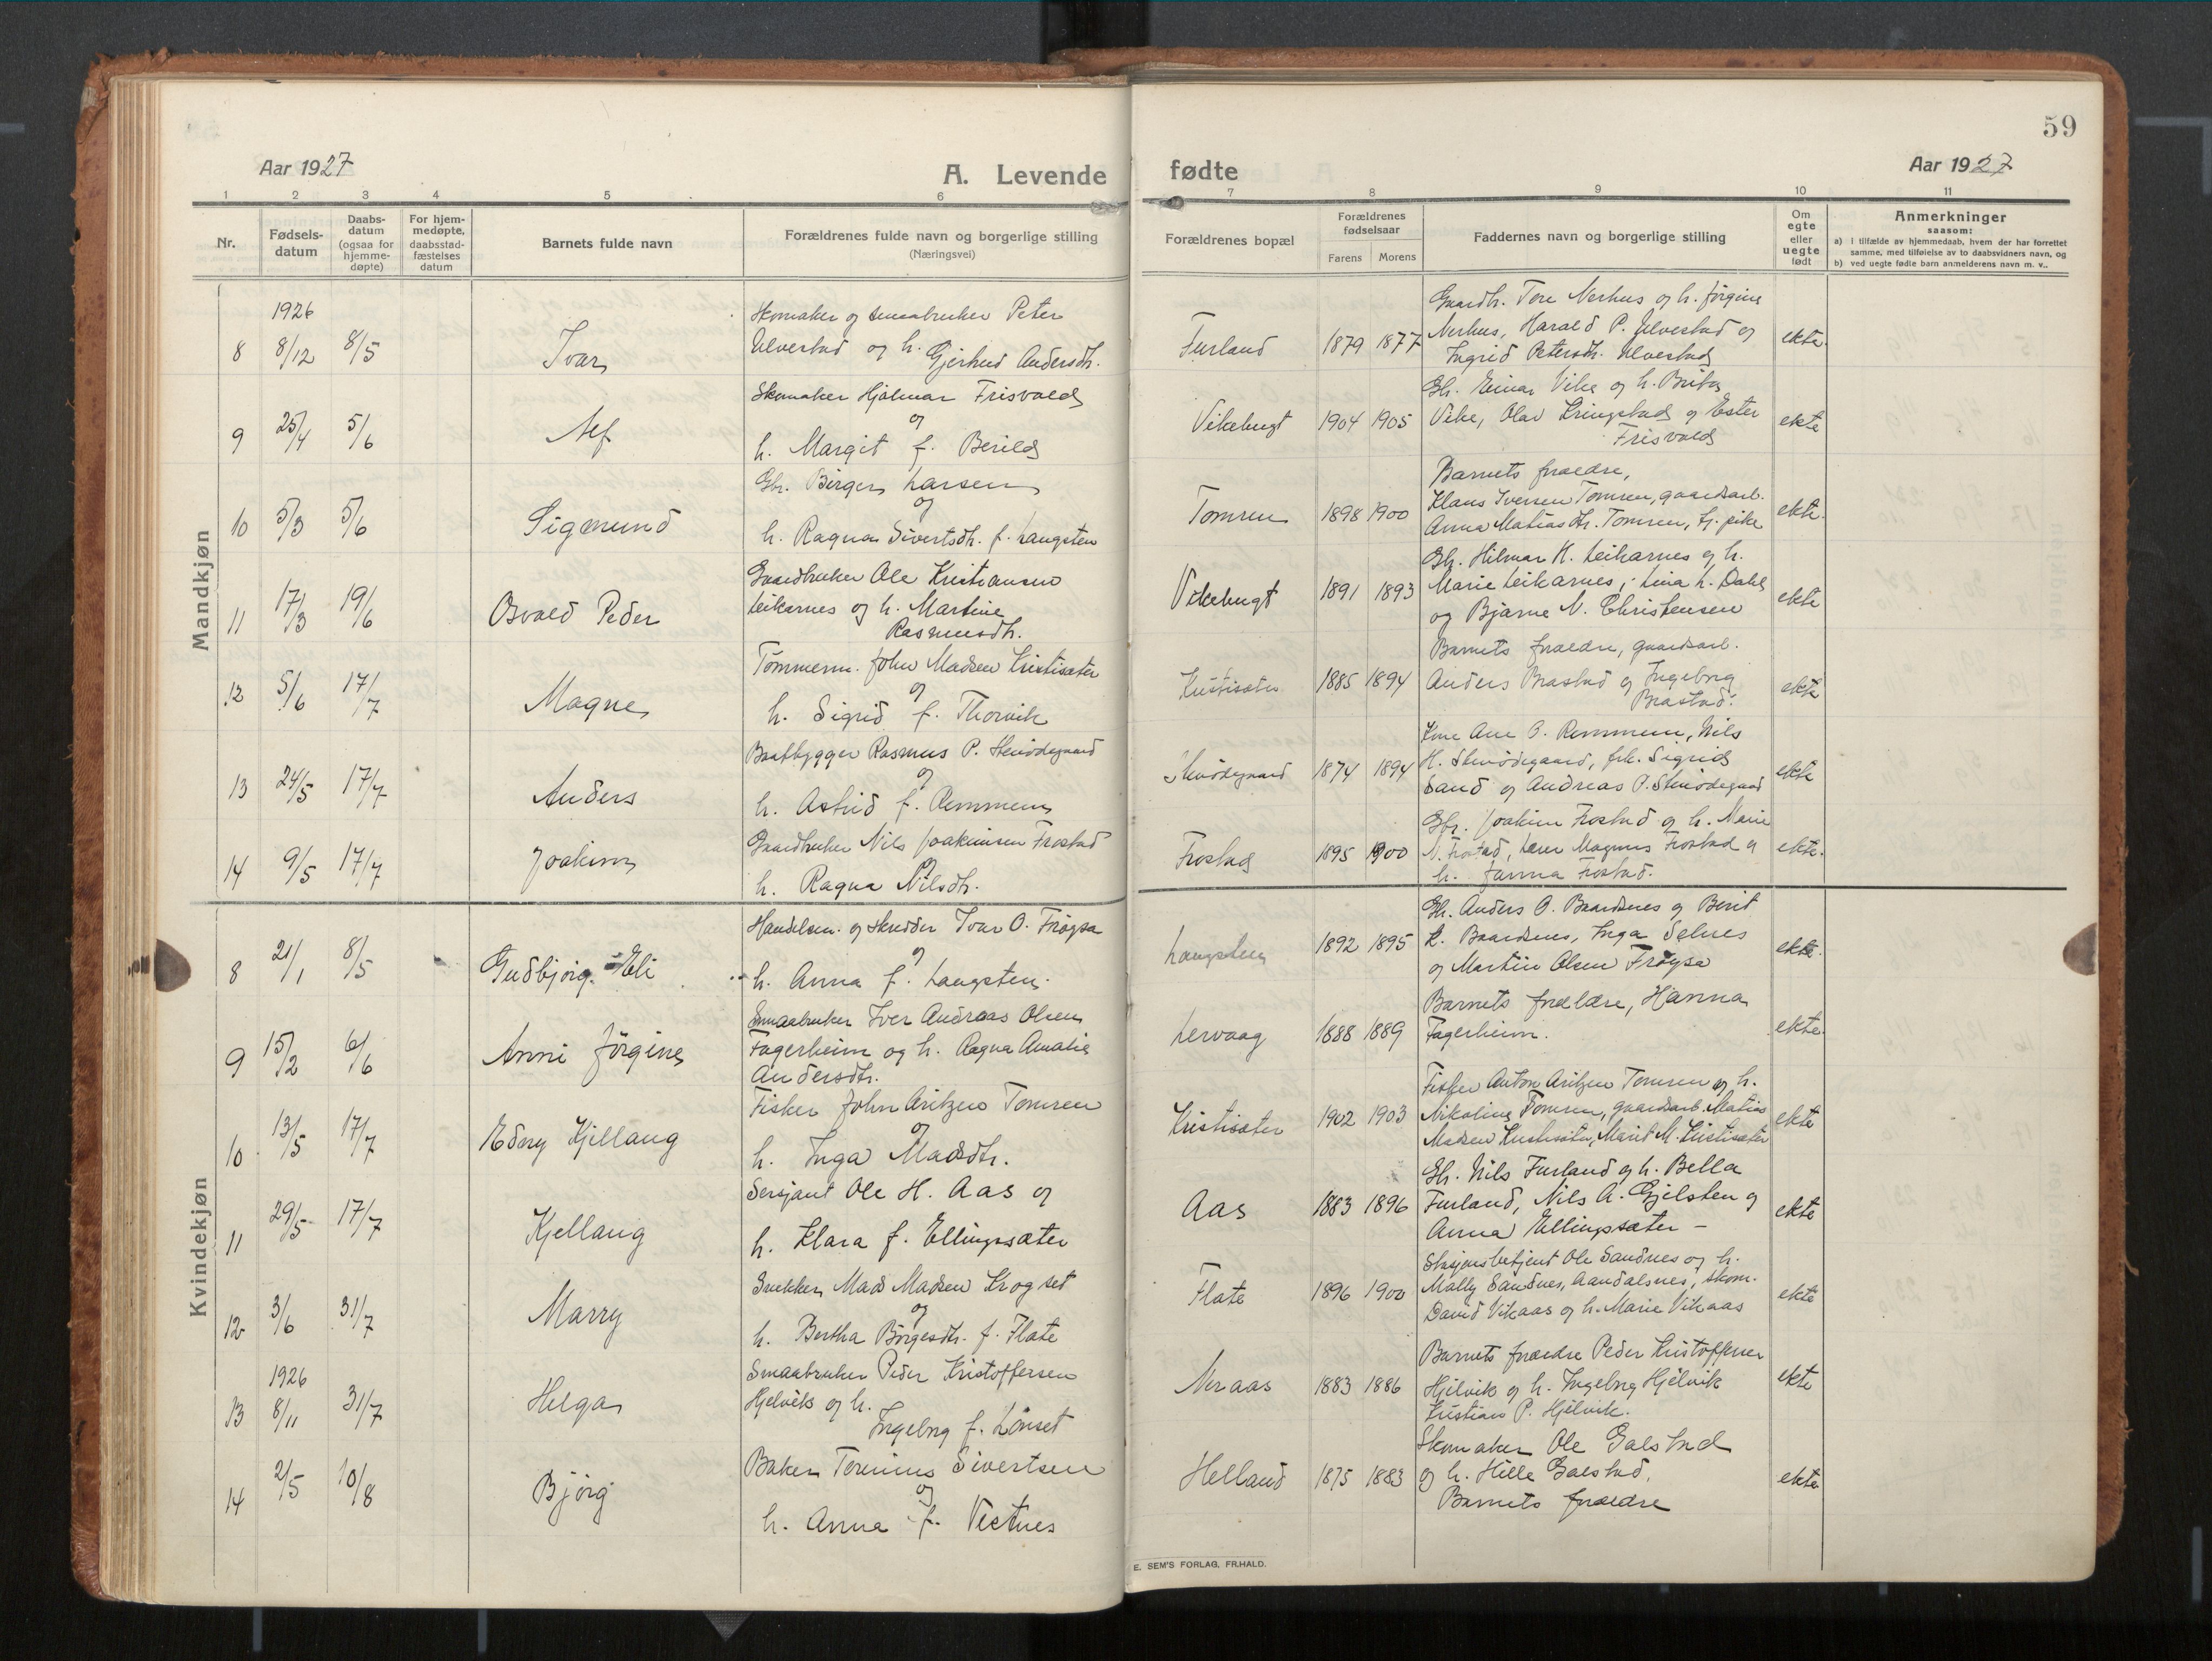 59
Aar 1927
A. Levende fødte
Aar 1927
1 2 3 4 5 6 7 8 9 10 11
Nr.
Fødsels-
datum
Daabs-
datum
(ogsaa for
hjemme-
døpte)
For hjem-
medøpte,
daabsstad-
fæstelses
datum
Barnets fulde navn
Forældrenes fulde navn og borgerlige stilling
(Næringsvei)
Forældrenes bopæl
Forældrenes
fødselsaar
Farens Morens
Faddernes navn og borgerlige stilling
Om
egte
eller
uegte
født
Anmerkninger
saasom:
a) i tilfælde av hjemmedaab, hvem der har forrettet
samme, med tilføielse av to daabsvidners navn, og
b) ved uegte fødte barn anmelderens navn m. v..
Mandkjøn
1926
8 8/12 8/5 Ivar
Skomaker og smaabruker Peter
Ulvestad og h. Gjertrud Andersdtr.
Furland 1879 1877
Gaardb. Tore Nerhus og h. Jørgine
Nerhus, Harald P. Ulvestad og
Ingrid Petersdtr. Ulvestad
ekte.
9 25/4 5/6 Alf
Skomaker Hjalmar Frisvold
og
h. Margit f. Berild
Vikebugt 1904 1905
Gb. Einar Vike og h. Brita
Vike, Olav Kringstad og Ester
Frisvold
ekte
10 5/3 5/6 Sigmund
Gbr. Birger Larsen
og
h. Ragna Sivertsdtr. f. Langsten
Tomren 1898 1900
Barnets foræłdre,
Klaus Iversen Tomren, gaardsarb.
Anna Matiasdtr. Tomren, tj. pike
ekte.
11 17/3 19/6 Osvald Peder
Gaardbruker Ole Kristiansen
Leikarnes og h. Martine
Rasmusdtr.
Vikebugt 1891 1893
Gb. Hilmar K. Leikarnes og h.
Marie Leikarnes, Lina L. Dahl
og Bjarne N. Christensen
ekte
12 5/6 17/7 Magne
Tømmerm. John Madsen Kristisæter
og
h. Sigrid f. Thorvik
Kristisæter 1885 1894
Barnets forældre, gaardsarb.
Anders Brastad og Ingeborg
Brastad.
ekte
13 24/5 17/7 Anders
Baatbygger Rasmus P. Stenødegaard
og
h. Astrid f. Remmem
Stenødegaard 1874 1894
Kone Ane O. Remmem, Nils
H. Stenødegaard, frk. Sigrid
Sand og Andreas P. Stenødegaard
ekte
14 9/5 17/7 Joakim
Gaardbruker Nils Joakimsen Frostad
og
h. Ragna Nilsdtr.
Frostad 1895 1900
Gbr. Joakim Frostad og h. Marie
N. Frostad, Lærer Magnus Frostad og
h. Janna Frostad.
ekte.
Kvindekjøn
8 21/1 8/5 Gudbjørg Eli
Handelsm. og skredder Ivar O. Frøysa
og
h. Anna f. Langsten.
Langsten 1892 1895
Gb. Anders O. Baardsnes og Berit
K. Baardsnes, Inga Selnes
og Martin Olsen Frøysa
ekte.
9 15/2 6/6 Anni Jørgine
Smaabruker Iver Andreas Olsen
Fagerheim og h. Ragna Amalie
Andersdtr.
Lervaag 1888 1889
Barnets forældre, Hanna
Fagerheim.
ekte
10 13/5 17/7 Edny Kjellaug
Fisker John Aritzen Tomren
og
h. Inga Madsdtr.
Kristisæter 1902 1903
Fisker Anton Aritzen Tomren og h.
Nikoline Tomren, gaardsarb. Matias
Madsen Kristisæter, Marit M. Kristisæter
ekte
11 29/5 17/7 Kjellaug
Sersjant Ole H. Aas og
h. Klara f. Ellingsæter
Aas 1883 1896
Gb. Nils Furland og h. Bella
Furland, Nils A. Gjelsten og
Anna Ellingsæter –
ekte
12 3/6 31/7 Marry
Snekker Mads Madsen Krogset
og
h. Bertha Børgesdtr. f. Flate
Flate 1896 1900
Stasjonsbetjent Ole Sandnes og h.
Mally Sandnes, Aandalsnes, skom.
David Vikaas og h. Marie Vikaas
ekte
1926
13 8/11 31/7 Helga
Smaabruker Peder Kristoffersen
Hjelvik og h.
Ingeborg f. Lønset
Neraas 1883 1886
Barnets forældre Peder Kristoffersen
Hjelvik og h. Ingeborg Hjelvik
Kristian P. Hjelvik.
ekte
14 2/5 10/8 Bjørg
Baker Sivertsen
og
h. Anna f. Vestnes
Helland 1875 1883
Skomaker Ole Galstad
og h. Hille Galstad,
Barnets forældre
ekte
E. SEM'S FORLAG, FR.HALD.